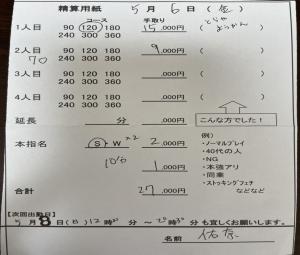 精算用紙 5月6日(金)
コース 手取り
1人目 90 120 180 15,000円 (とらや ようかん)
240 300 360
2人目 90 120 180 9,000円 ( )
70 240 300 360
3人目 90 120 180 ,000円 ( )
240 300 360
4人目 90 120 180 ,000円 ( )
240 300 360
延長 分 ,000円 こんな方でした!
本指名 S・W ×2 2,000円 例)
・ノーマルプレイ
・40代の人
10% 1,000円 ・NG
・本強アリ
・同業
合計 27,000円 ・ストッキングフェチ
などなど
【次回出勤日】
5月8日(日)12時 分 ~20時30分も宜しくお願いします。
名前